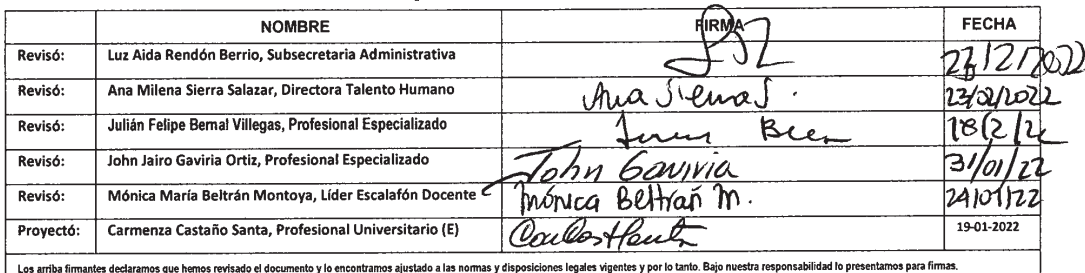 NOMBRE FIRMA FECHA
Revisó: Luz Aida Rendón Berrio, Subsecretaria Administrativa
Revisó: Ana Milena Sierra Salazar, Directora Talento Humano Ana Sierra S. 23/02/2022
Revisó: Julián Felipe Bernal Villegas, Profesional Especializado 18/2/22
Revisó: John Jairo Gaviria Ortiz, Profesional Especializado John Gaviria 31/01/22
Revisó: Mónica María Beltrán Montoya, Líder Escalafón Docente Mónica Beltrán M. 24/01/22
Proyectó: Carmenza Castaño Santa, Profesional Universitario (E) 19-01-2022
Los arriba firmantes declaramos que hemos revisado el documento y lo encontramos ajustado a las normas y disposiciones legales vigentes y por lo tanto. Bajo nuestra responsabilidad lo presentamos para firmas.